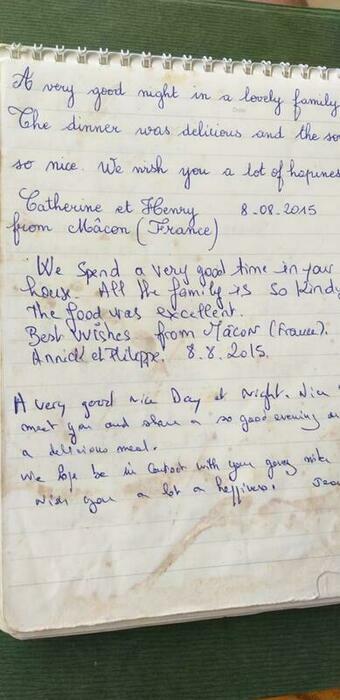 A very good night in a lovely family
The dinner was delicious and the
so nice. We wish you a lot of hapines
Catherine et Henry 8.08.2015
from Mâcon (France)
We Spend a very good time in your
house. All the family is so kindy
The food was excellent.
Best Wishes from Mâcon (France).
Annick et Philippe. 8.8.2015.
A very good nice Day et Night. Nice
meet you and share a so good evening
a delicious meal.
We hope be in contact with you
wish you a lot a heppiness.